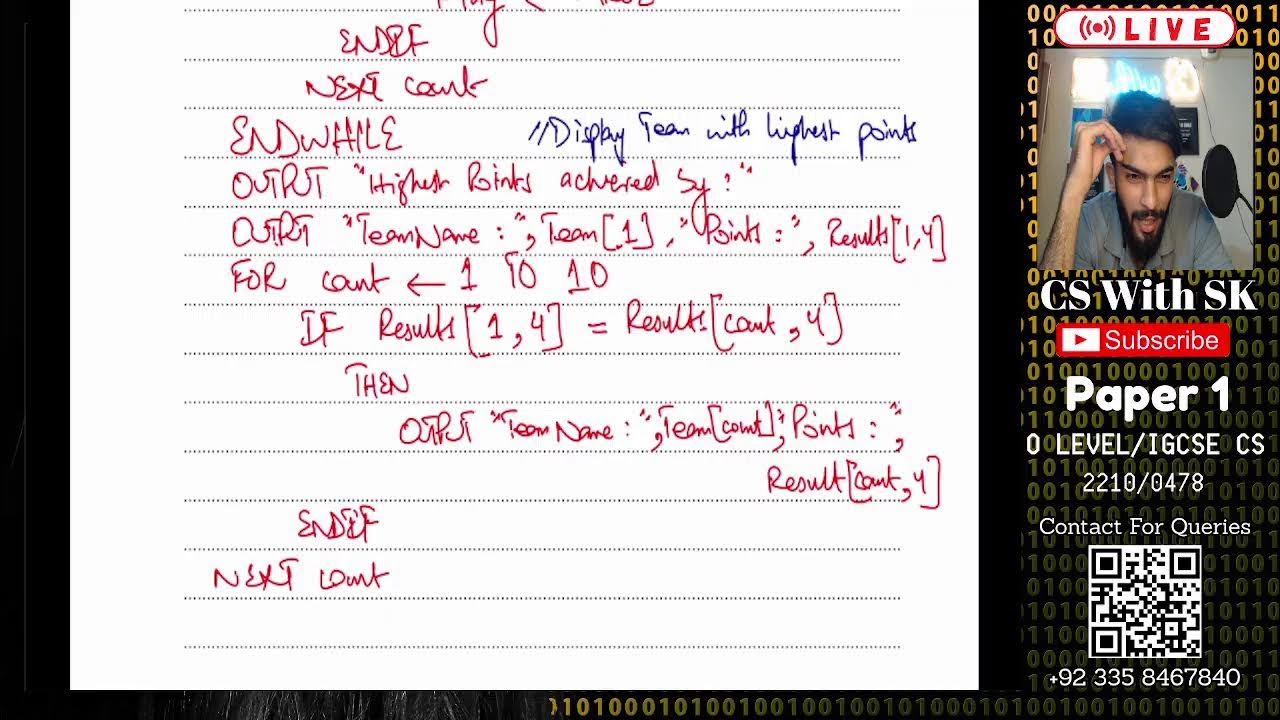 ENDIF
NEXT count
ENDWHILE //Display Team with highest points
OUTPUT "Highest Points achieved by :"
OUTPUT "TeamName :", Team[1], "Points :", Results[1,4]
FOR count ← 1 TO 10
IF Results[1,4] = Results[count,4]
THEN
OUTPUT "TeamName :", Team[count], "Points :",
Result[count,4]
ENDIF
NEXT count
LIVE
CS With SK
Subscribe
Paper 1
O LEVEL/IGCSE CS
2210/0478
Contact For Queries
+92 335 8467840